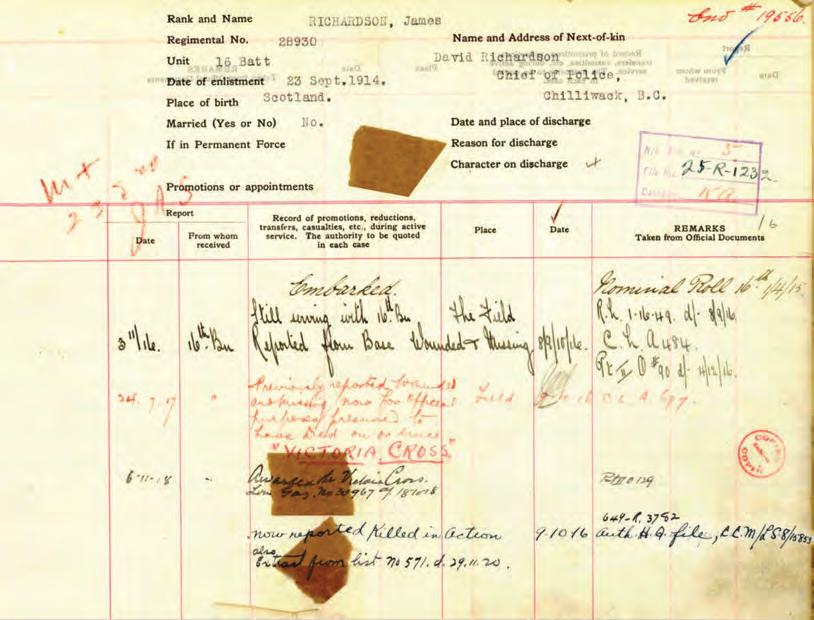 End # 19556.
Rank and Name RICHARDSON, James
Regimental No. 28930
Name and Address of Next-of-kin
Unit 16 Batt
David Richardson
Date of enlistment 23 Sept.1914.
Chief of Police,
Place of birth Scotland.
Chilliwack, B.C.
Married (Yes or No) No.
Date and place of discharge
If in Permanent Force
Reason for discharge
Character on discharge
25-R-1232.
Promotions or appointments
Report
Date
From whom received
Record of promotions, reductions, transfers, casualties, etc., during active service. The authority to be quoted in each case
Place
Date
REMARKS
Taken from Official Documents
Embarked.
Nominal Roll 16th 1/4/15
Still serving with 16th Bn The Field
3"/16. 16th Bn Reported from Base Wounded & Missing 8/9/10/16. C.L. A 484.
Pt II O #90 d/- 4/12/16.
24.7.17 " Previously reported wounded
and missing now for official Field
purposes presumed to
have died on or since
"VICTORIA CROSS"
6-11-18 " Awarded the Victoria Cross.
Lon. Gaz. No 30967 of 18/10/18
649-R. 3782
now reported Killed in Action 9-10-16 Auth H.Q. file,
also
Extract from list No 571. d. 29.11.20.